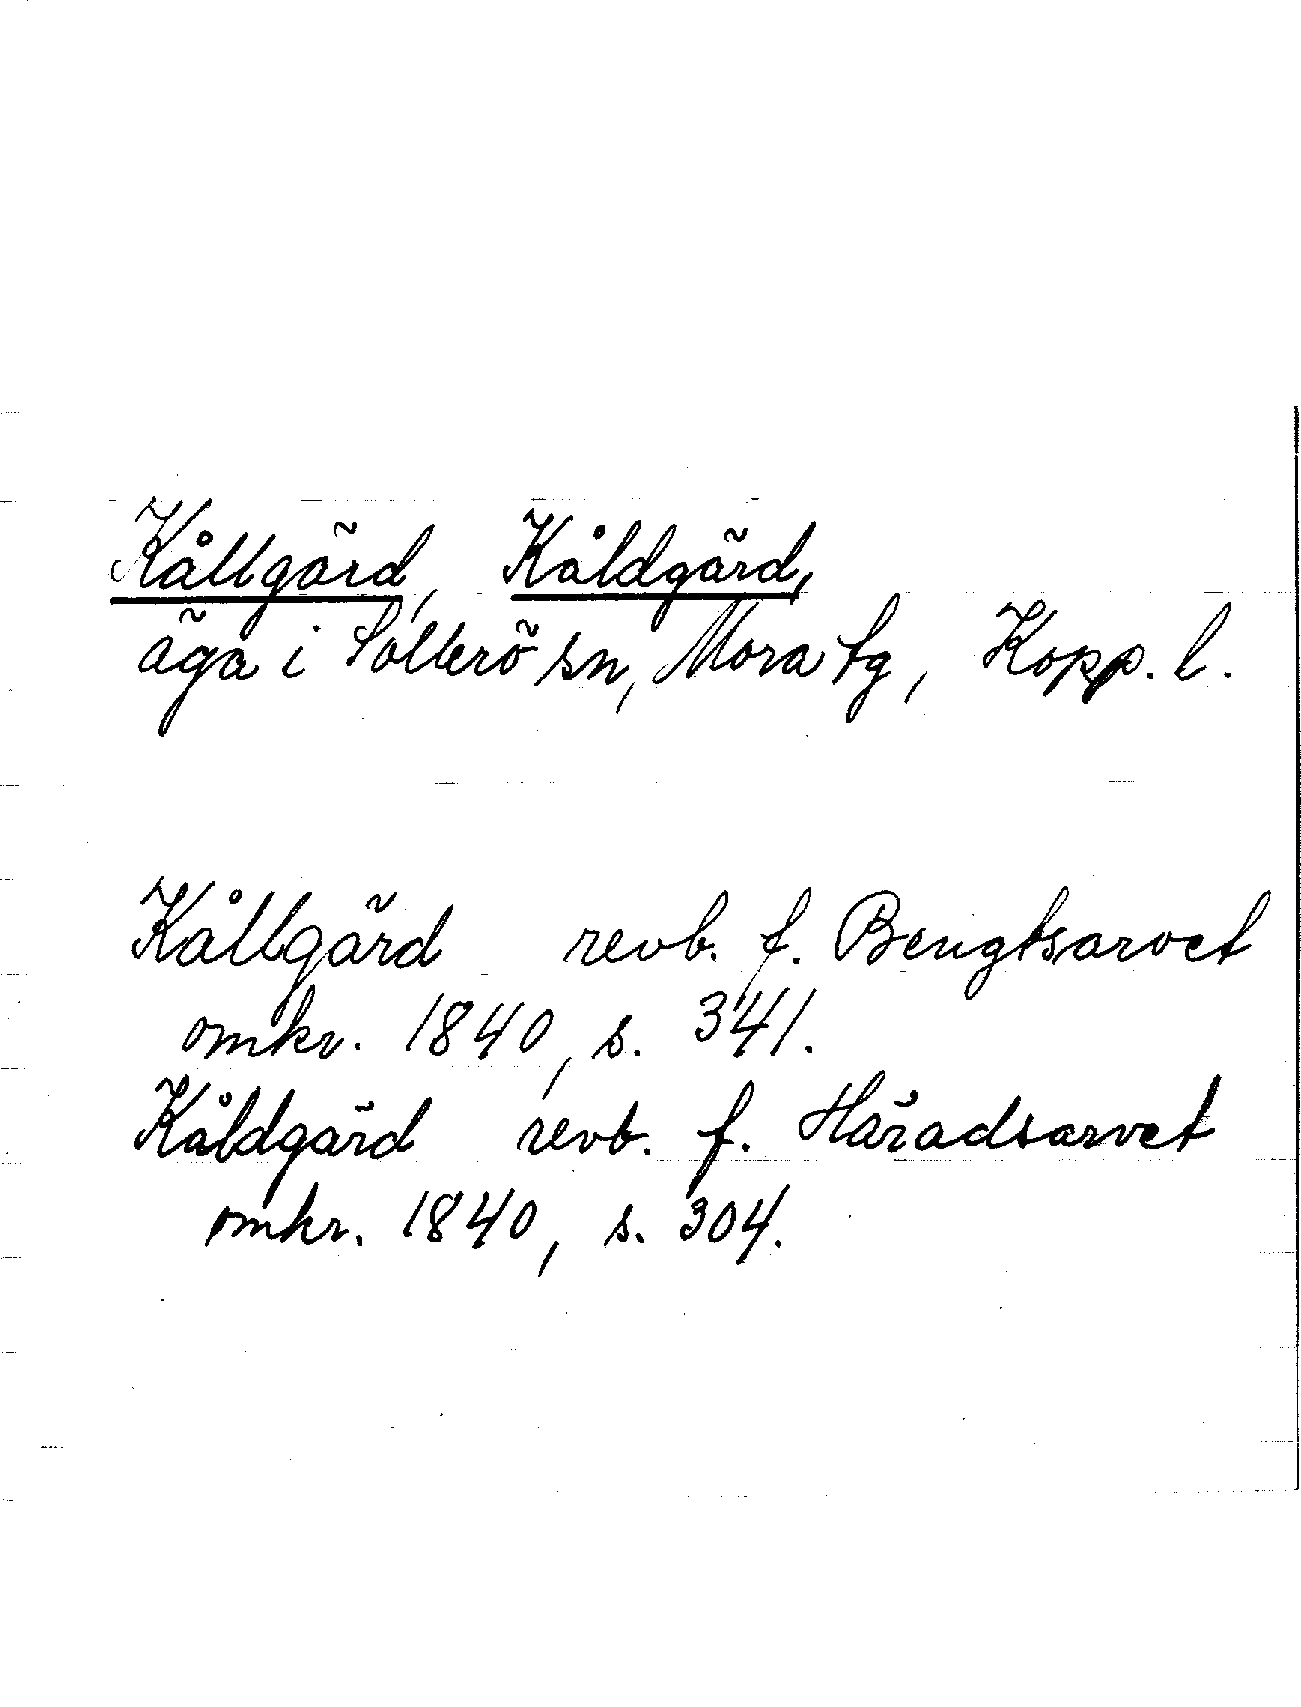 Kållgärd, Kåldgärd,
äga i Sollerö sn, Mora tg, Kopp. l.
Kållgärd revb. f. Bengtsarvet
omkr. 1840, s. 341.
Kåldgärd revb. f. Häradsarvet
omkr. 1840, s. 304.